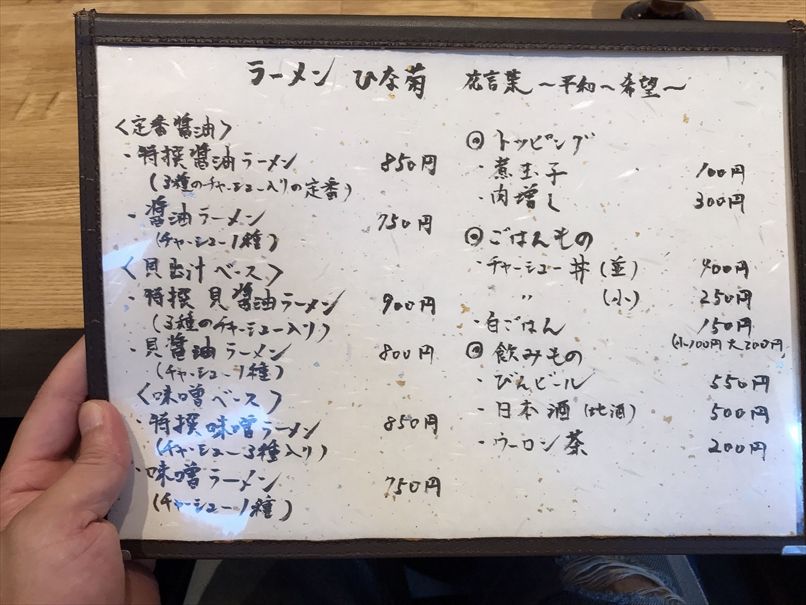 ラーメン ひな菊 花言葉 ～平和へ希望～
〈定番醤油〉
・特撰醤油ラーメン 850円
(3種のチャーシュー入りの定番)
・醤油ラーメン 750円
(チャーシュー1種)
〈貝出汁ベース〉
・特撰貝醤油ラーメン 900円
(3種のチャーシュー入り)
・貝醤油ラーメン 800円
(チャーシュー1種)
〈味噌ベース〉
・特撰味噌ラーメン 850円
(チャーシュー3種入り)
・味噌ラーメン 750円
(チャーシュー1種)
◎トッピング
・煮玉子 100円
・肉増し 300円
◎ごはんもの
・チャーシュー丼(並) 400円
〃 (小) 250円
・白ごはん 150円
(小100円 大200円)
◎飲みもの
・びんビール 550円
・日本酒(地酒) 500円
・ウーロン茶 200円